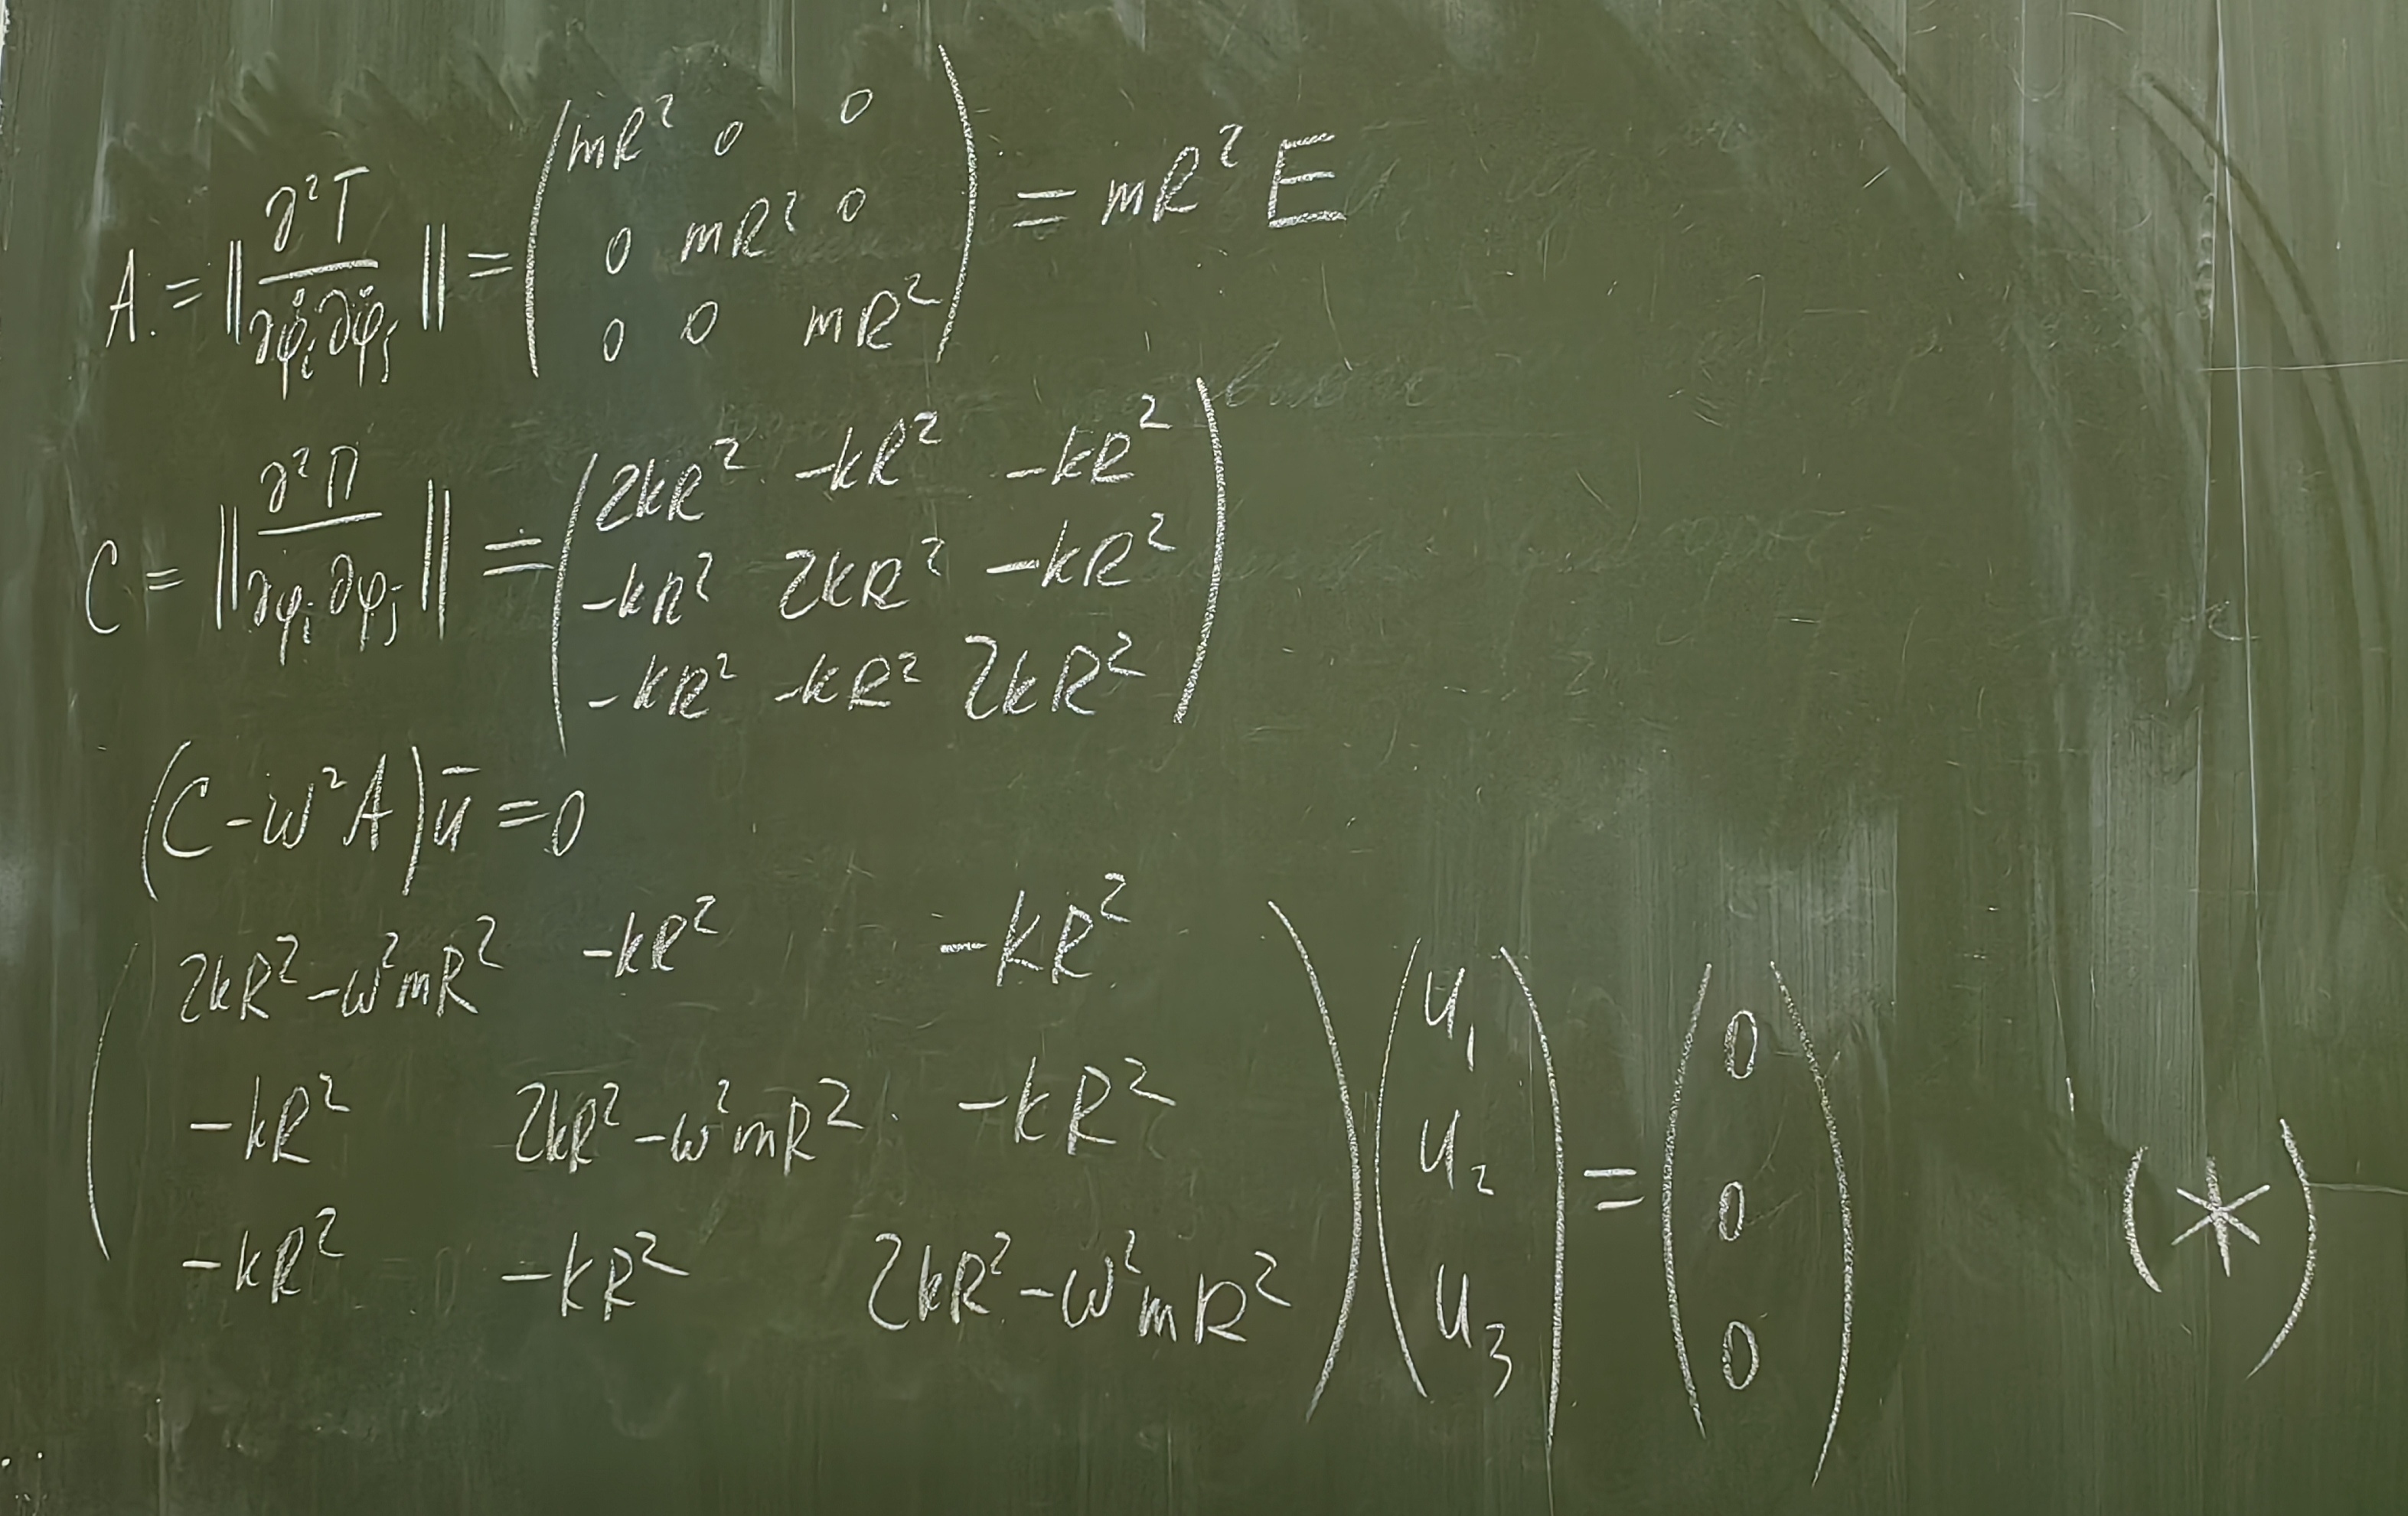 A = ‖∂²T/∂φ̇ᵢ∂φ̇ⱼ‖ = (mR² 0 0; 0 mR² 0; 0 0 mR²) = mR² E
C = ‖∂²Π/∂φᵢ∂φⱼ‖ = (2kR² -kR² -kR²; -kR² 2kR² -kR²; -kR² -kR² 2kR²)
(C - ω²A) ū = 0
(2kR² - ω²mR² -kR² -kR²; -kR² 2kR² - ω²mR² -kR²; -kR² -kR² 2kR² - ω²mR²) (u₁; u₂; u₃) = (0; 0; 0) (*)